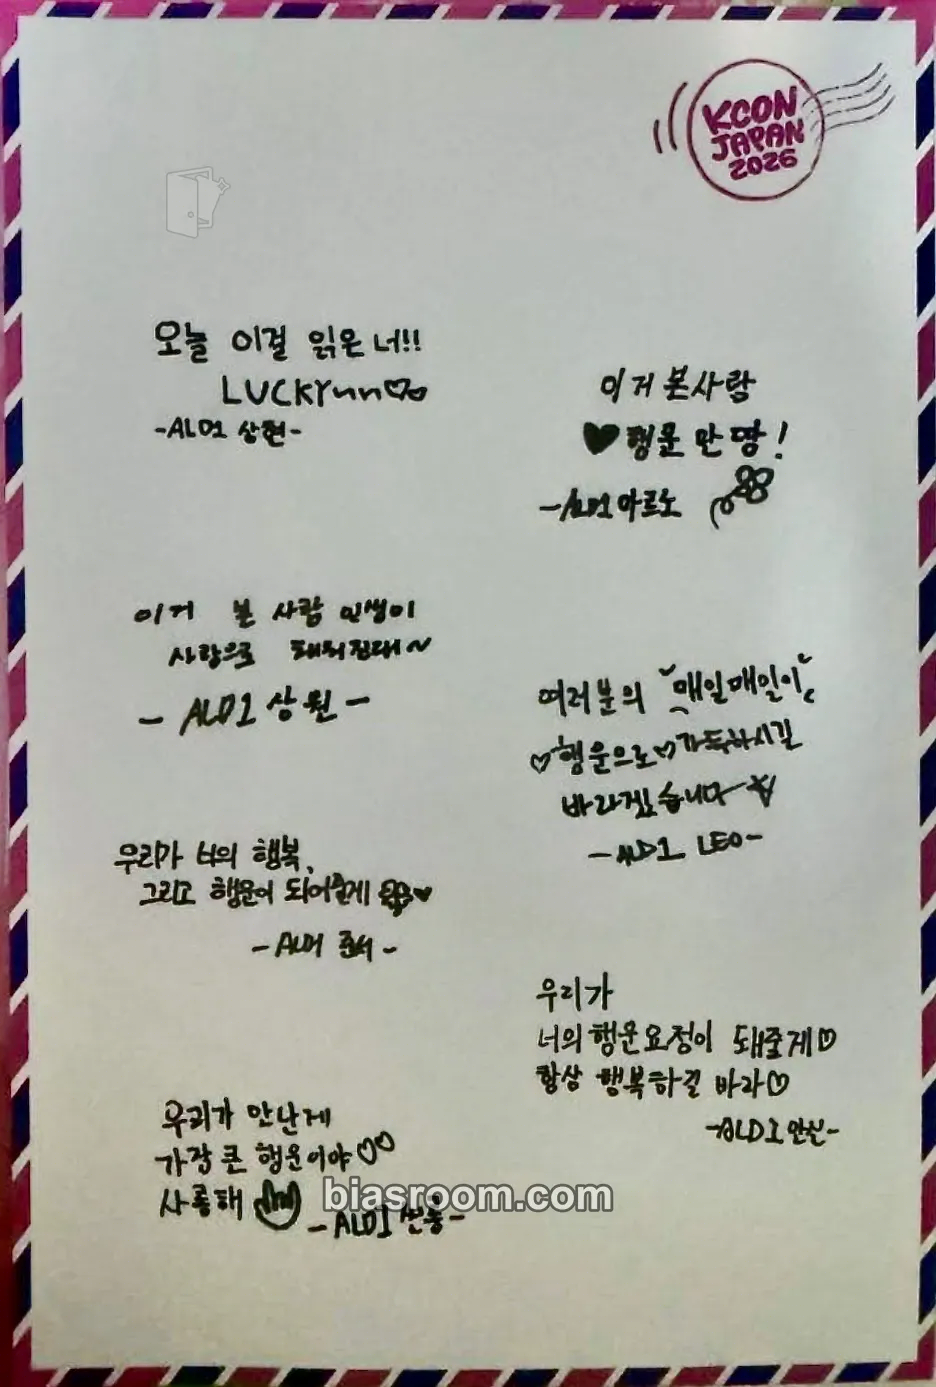 KCON
JAPAN
2026
오늘 이걸 읽은 너!!
LUCKYnn
-ALD1 상현-
이거 본사람
행운 만땅!
-ALD1 아르노
이거 본 사람 인생이
사랑으로 채워진대~
- ALD1 상원 -
여러분의 매일매일이
행운으로 가득하시길
바라겠습니다
-ALD1 LEO-
우리가 너의 행복,
그리고 행운이 되어줄게
- ALD1 준서 -
우리가
너의 행운요정이 돼줄게♡
항상 행복하길 바라♡
-ALD1 안신-
우리가 만난게
가장 큰 행운이야♡♡
사롱해
-ALD1 씬롱-
biasroom.com